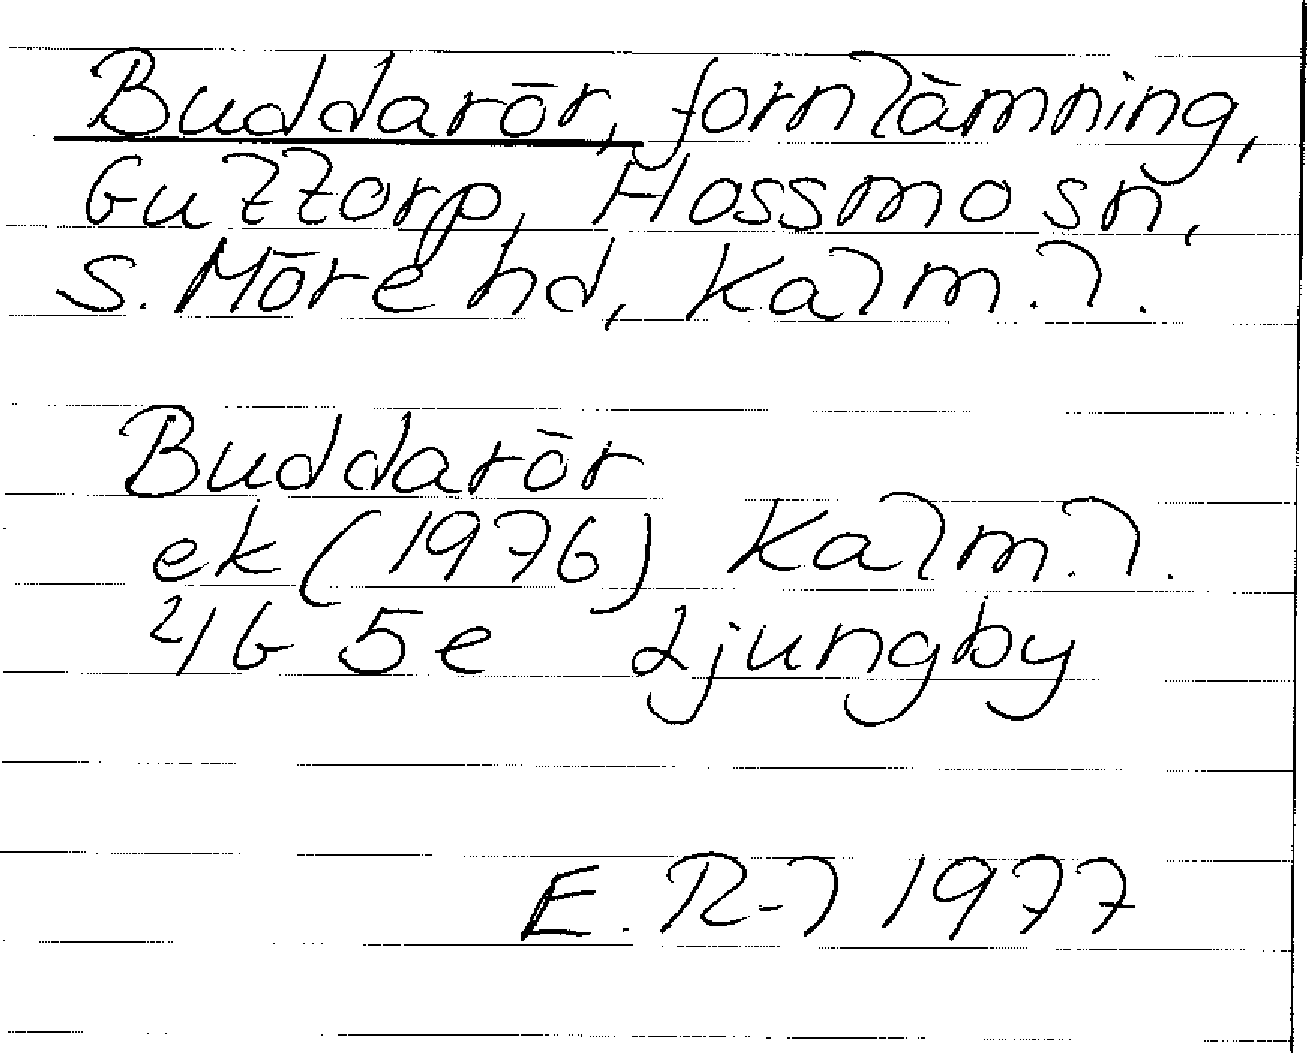 Buddarör, fornlämning,
Guttorp, Hossmo sn,
S. Möre hd, Kalm. l.
Buddarör
ek (1976) Kalm. l.
4G 5e Ljungby
E. R-l 1977